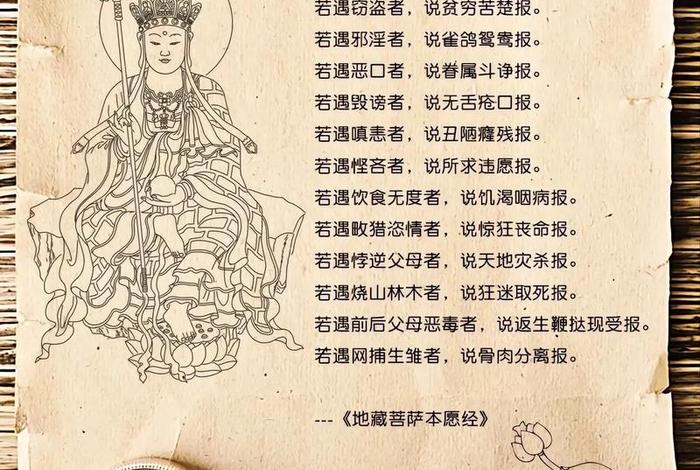 若遇窃盗者，说贫穷苦楚报。
若遇邪淫者，说雀鸽鸳鸯报。
若遇恶口者，说眷属斗诤报。
若遇毁谤者，说无舌疮口报。
若遇嗔恚者，说丑陋癃残报。
若遇悭吝者，说所求违愿报。
若遇饮食无度者，说饥渴咽病报。
若遇畋猎恣情者，说惊狂丧命报。
若遇悖逆父母者，说天地灾杀报。
若遇烧山林木者，说狂迷取死报。
若遇前后父母恶毒者，说返生鞭挞现受报。
若遇网捕生雏者，说骨肉分离报。
---《地藏菩萨本愿经》